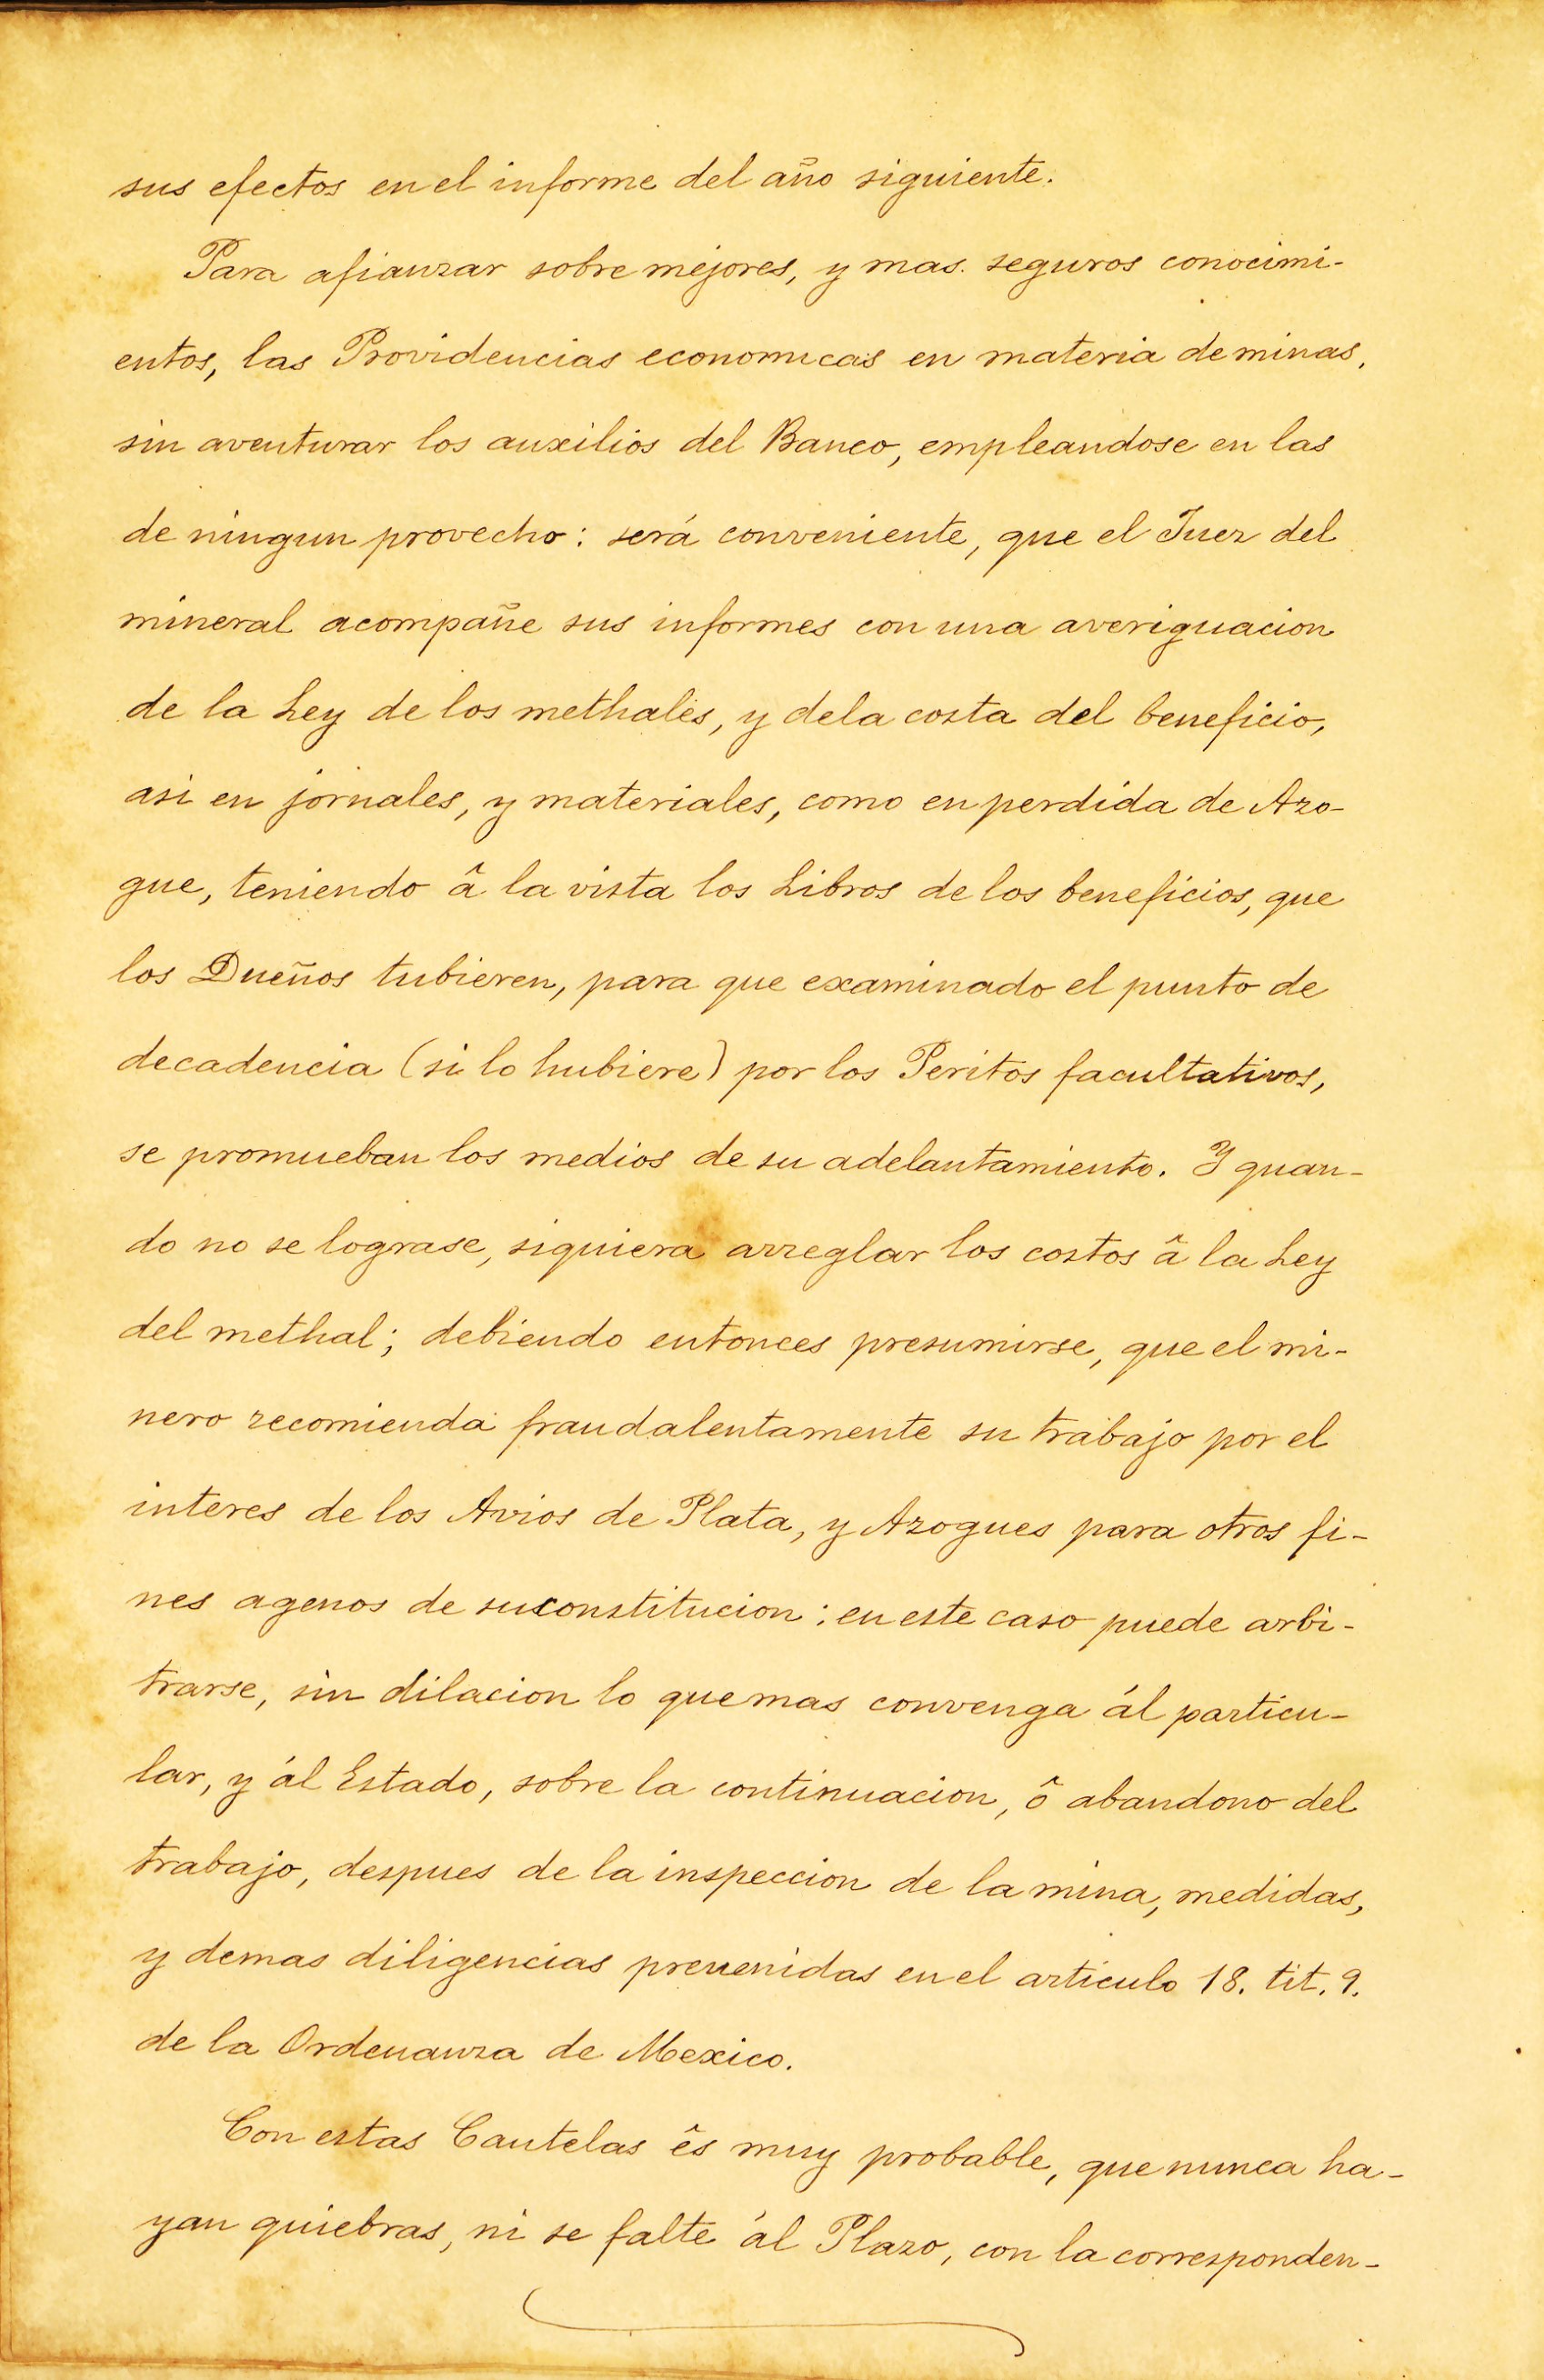 sus efectos en el informe del año siguiente.
Para afianzar sobre mejores, y mas. seguros conocimi-
entos, las Providencias economicas en materia de minas,
sin aventurar los auxilios del Banco, empleandose en las
de ningun provecho: será conveniente, que el Juez del
mineral acompañe sus informes con una averiguacion
de la Ley de los methales, y dela costa del beneficio,
asi en jornales, y materiales, como en perdida de Azo-
gue, teniendo â la vista los Libros de los beneficios, que
los Dueños tubieren, para que examinado el punto de
decadencia (si lo hubiere) por los Peritos facultativos,
se promueban los medios de su adelantamiento. Y quan-
do no se lograse, siquiera arreglar los costos â la Ley
del methal; debiendo entonces presumirse, que el mi-
nero recomienda fraudalentamente su trabajo por el
interes de los Avios de Plata, y Azogues para otros fi-
nes agenos de su constitucion: en este caso puede arbi-
trarse, sin dilacion lo que mas convenga ál particu-
lar, y ál Estado, sobre la continuacion, ô abandono del
trabajo, despues de la inspeccion de la mina, medidas,
y demas diligencias prevenidas en el articulo 18. tit. 9.
de la Ordenanza de Mexico.
Con estas Cautelas ês muy probable, que nunca ha-
yan quiebras, ni se falte ál Plazo, con la corresponden-